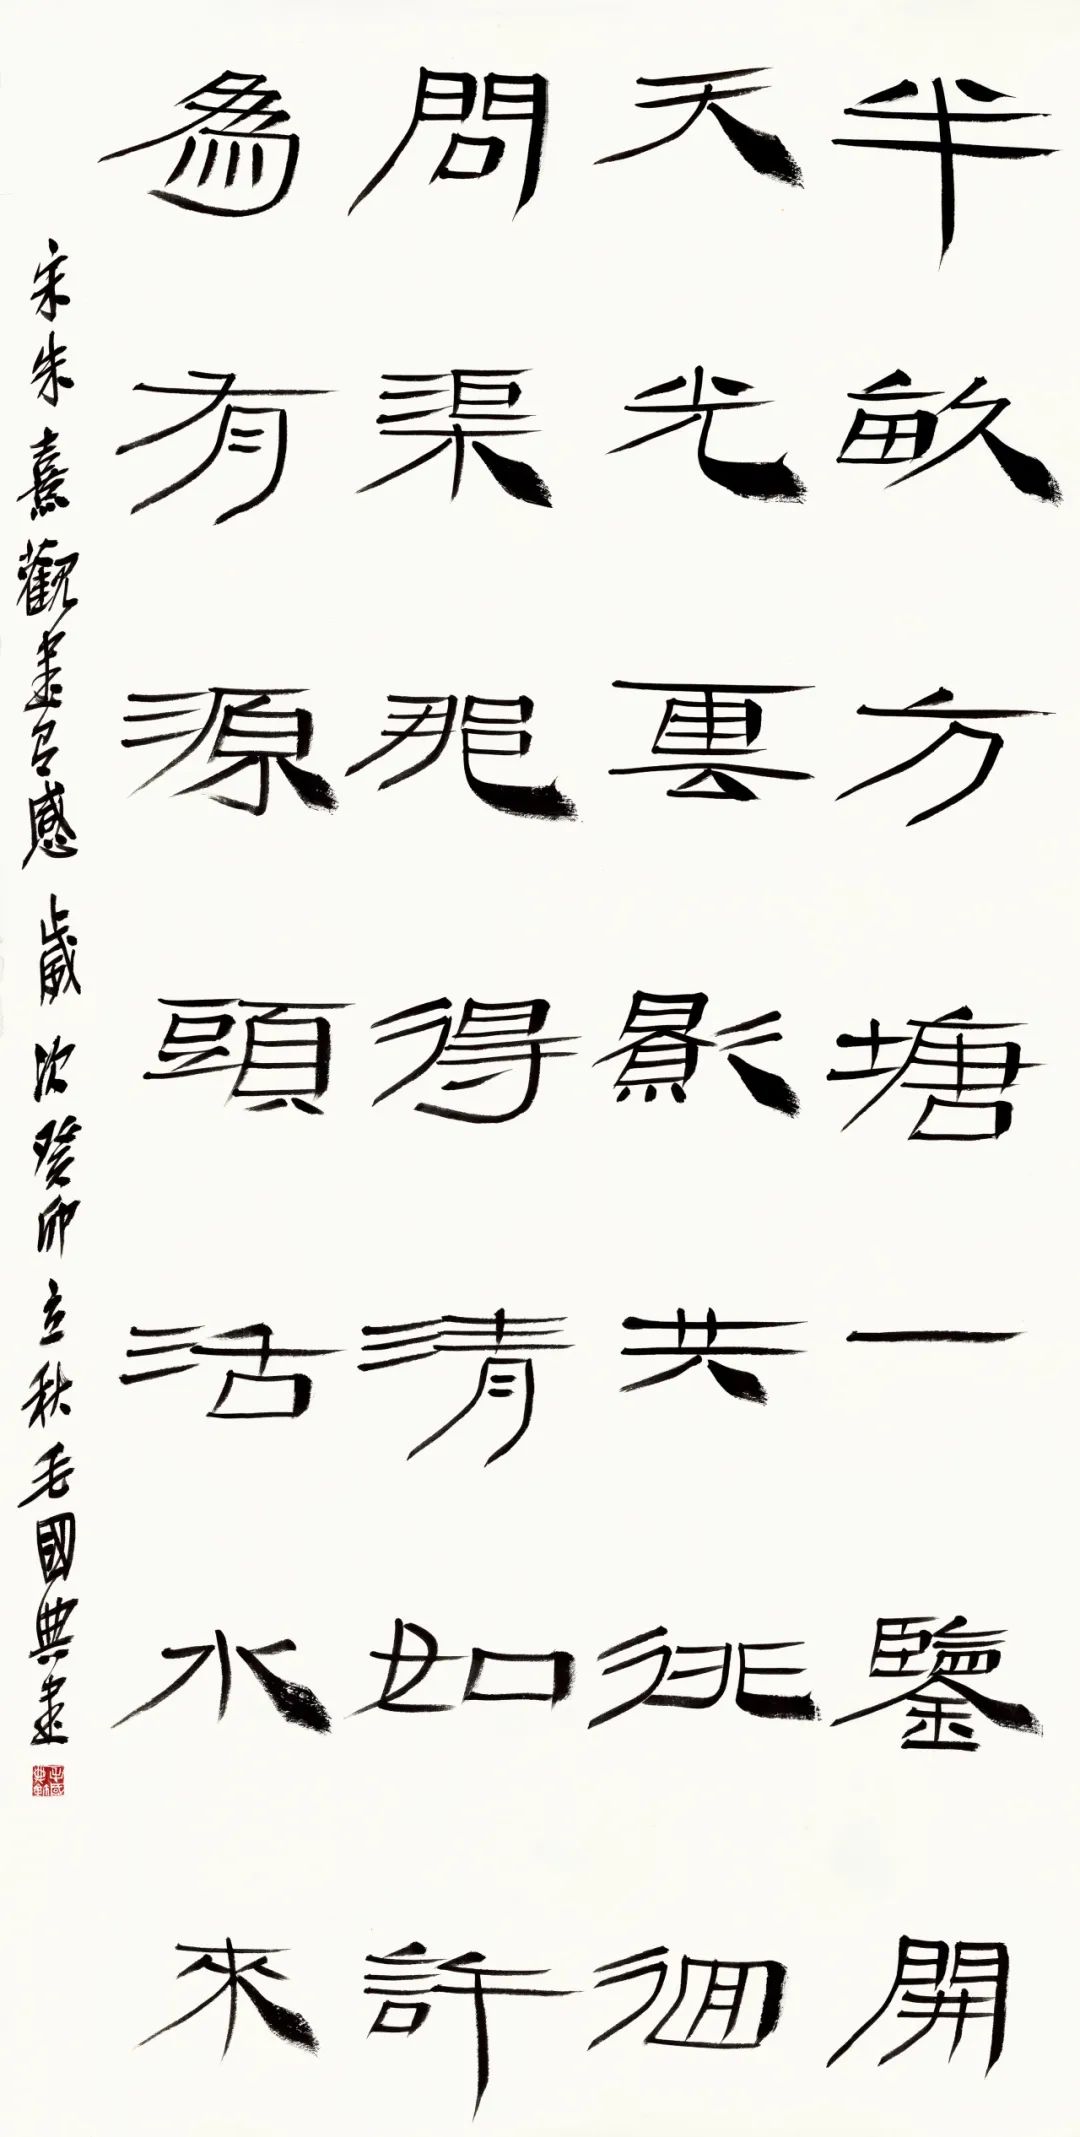 半畝方塘一鑒開
天光雲影共徘徊
問渠那得清如許
爲有源頭活水來
宋朱熹觀書有感 歲次癸卯立秋毛國典書